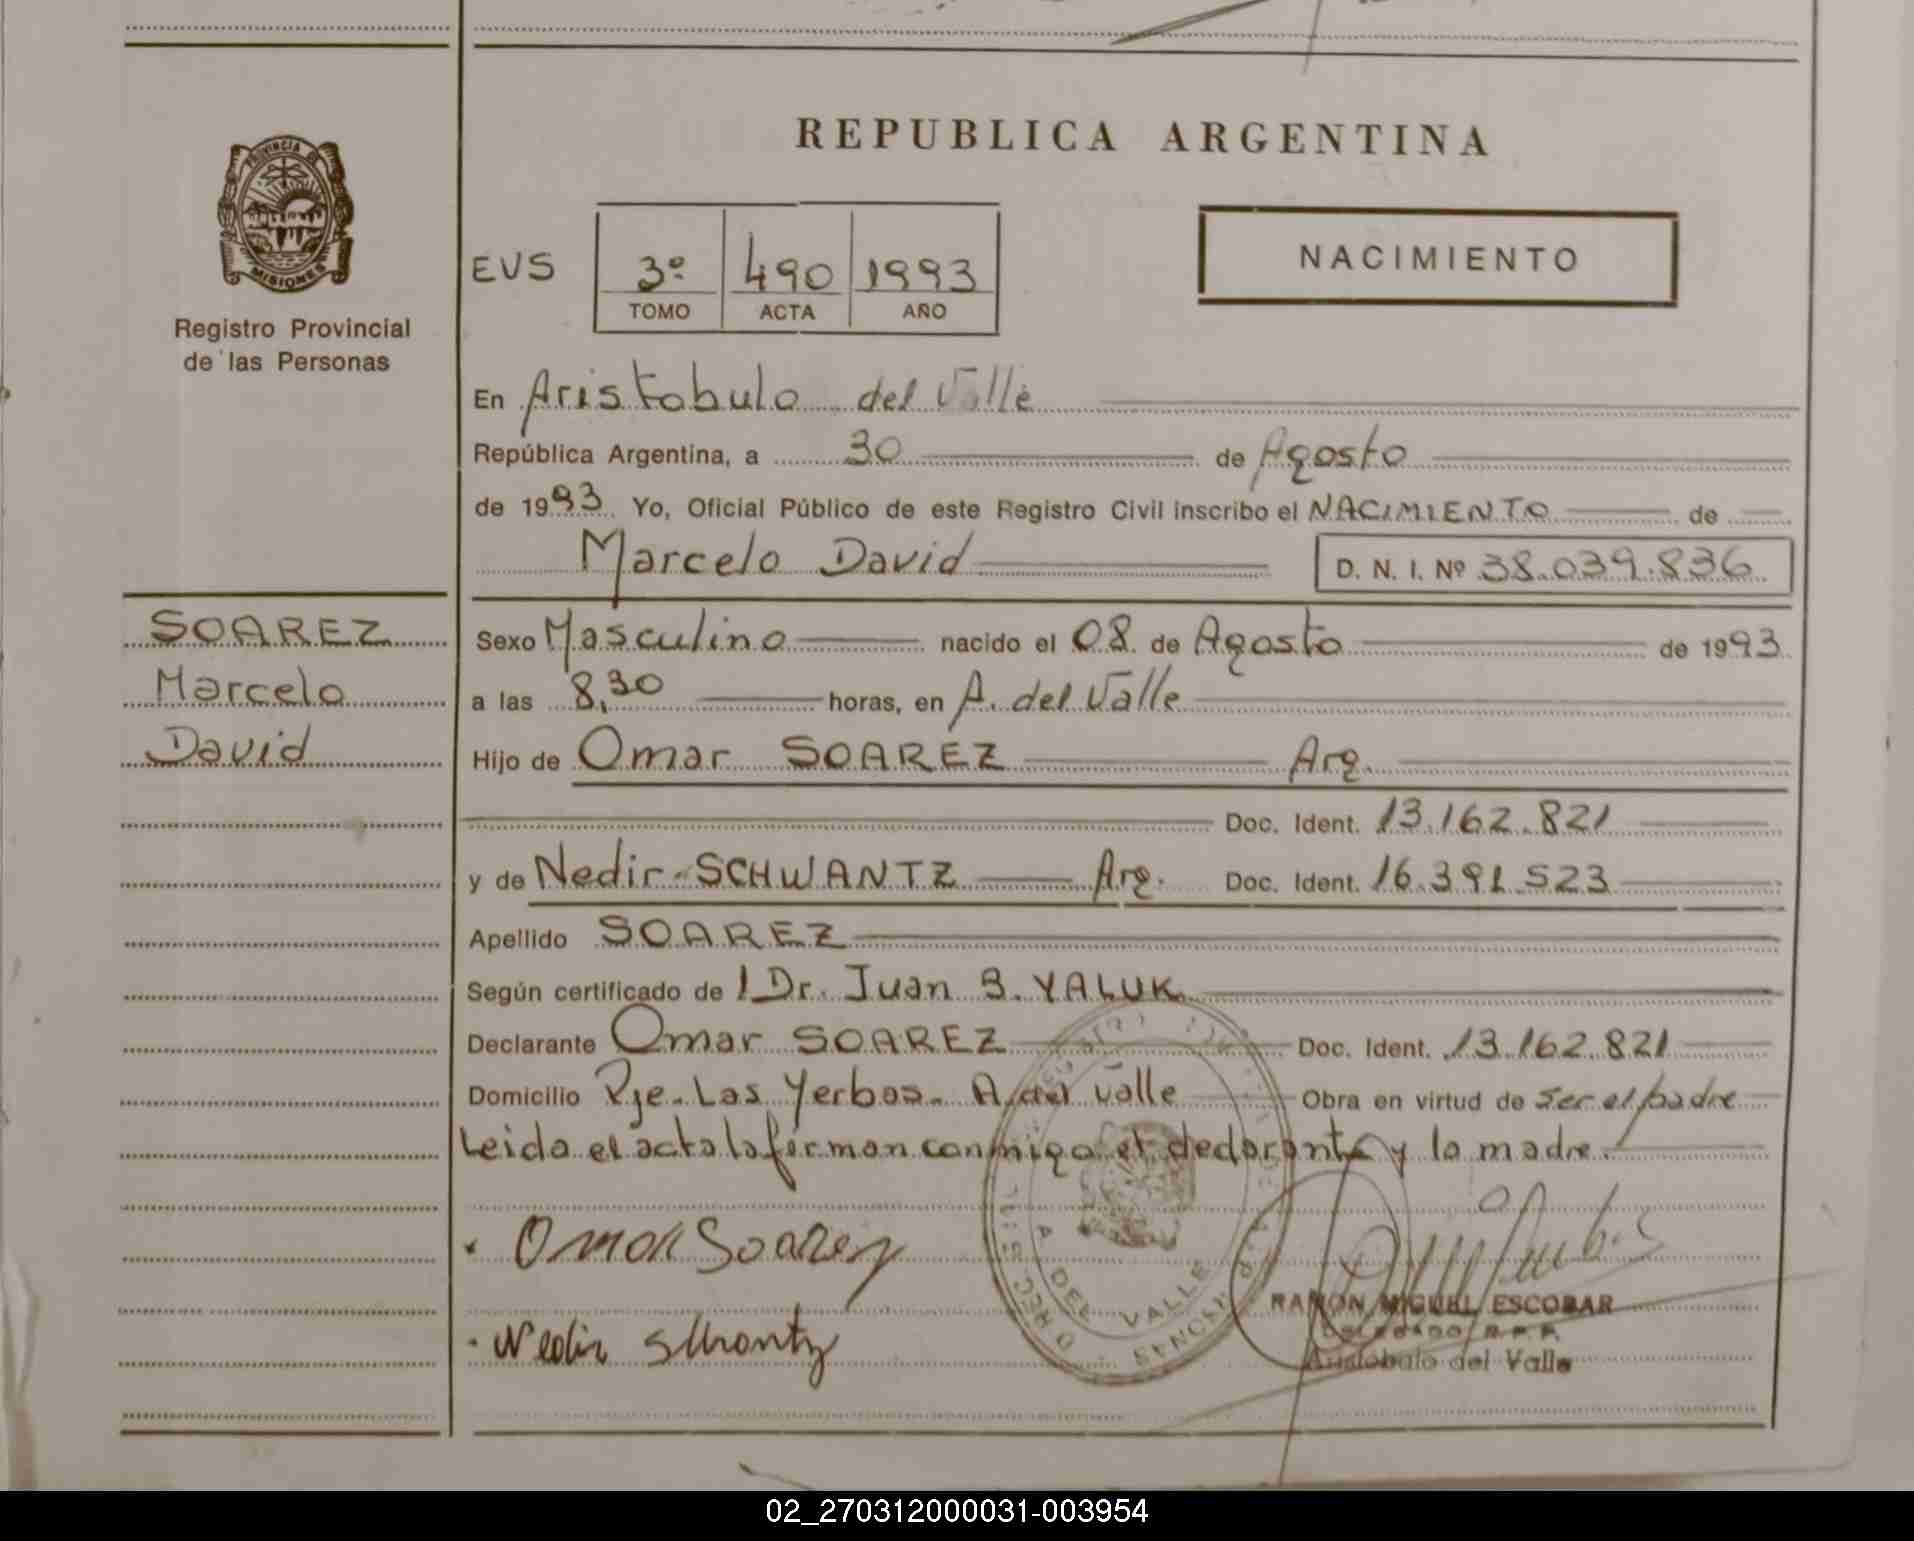 PROVINCIA DE
MISIONES
Registro Provincial
de las Personas
SOAREZ
Marcelo
David
REPUBLICA ARGENTINA
EVS
3º 490 1993
TOMO ACTA AÑO
NACIMIENTO
En Aristobulo del Valle
República Argentina, a 30 de Agosto
de 1993 Yo, Oficial Público de este Registro Civil inscribo el NACIMIENTO de
Marcelo David D. N. I. Nº 38.039.836
Sexo Masculino nacido el 08 de Agosto de 1993
a las 8,30 horas, en A. del Valle
Hijo de Omar SOAREZ Arg.
Doc. Ident. 13.162.821
y de Nedir SCHWANTZ Arg. Doc. Ident. 16.391.523
Apellido SOAREZ
Según certificado de l Dr. Juan B. YALUK
Declarante Omar SOAREZ Doc. Ident. 13.162.821
Domicilio Pje. Las Yerbas. A. del Valle Obra en virtud de ser el padre
Leida el acta la firman conmigo el declarante y la madre.
Omar Soarez
Nedir Shwantz
A. DEL VALLE
MISIONES
RAMON MIGUEL ESCOBAR
DELEGADO R.P.P.
Aristóbulo del Valle
02_270312000031-003954